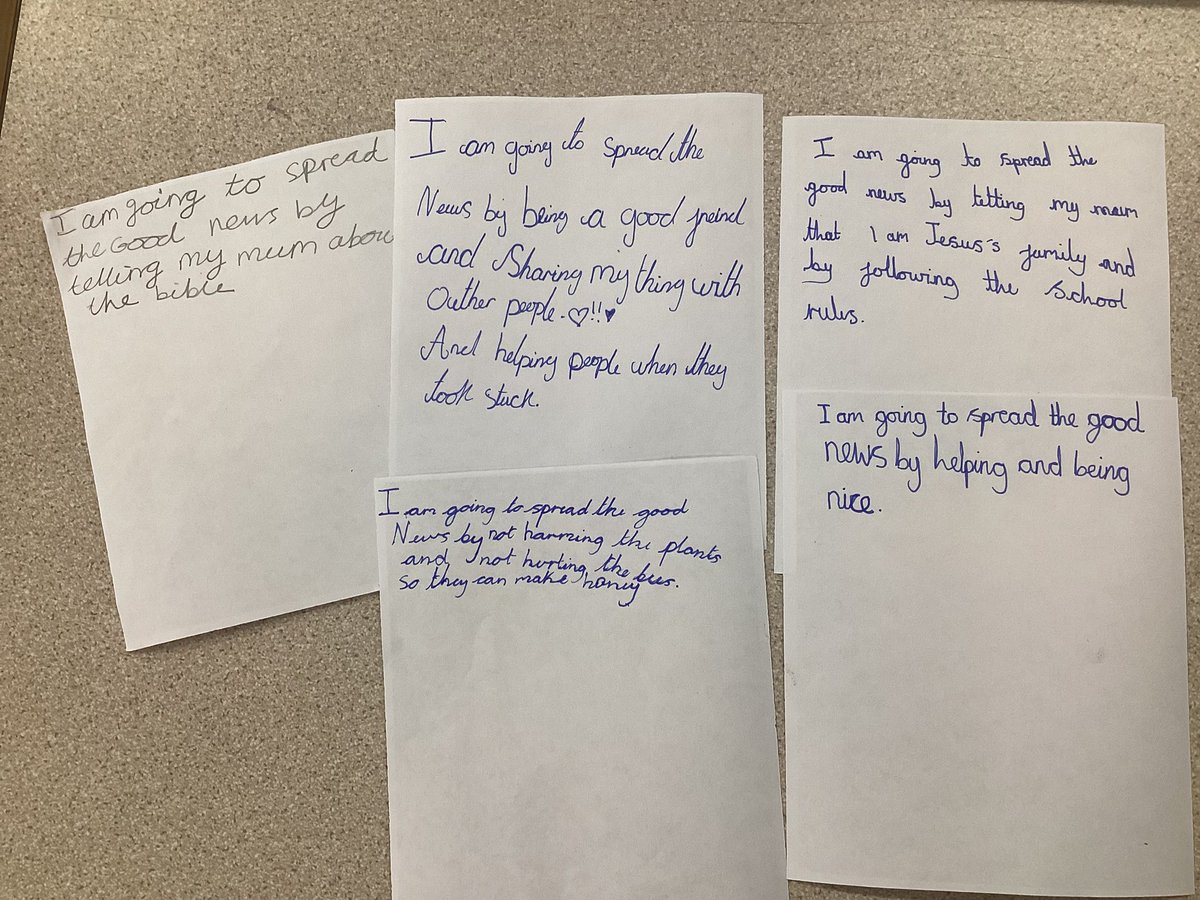 I am going to spread
the Good news by
telling my mum abou
the bible
I am going to spread the
News by being a good freind
and Sharing my thing with
Outher people.♡!!♥
And helping people when they
look stuck.
I am going to spread the
good news by telling my mum
that I am Jesus's family and
by following the School
rules.
I am going to spread the good
News by not harming the plants
and not hurting the bees.
so they can make honey
I am going to spread the good
news by helping and being
nice.